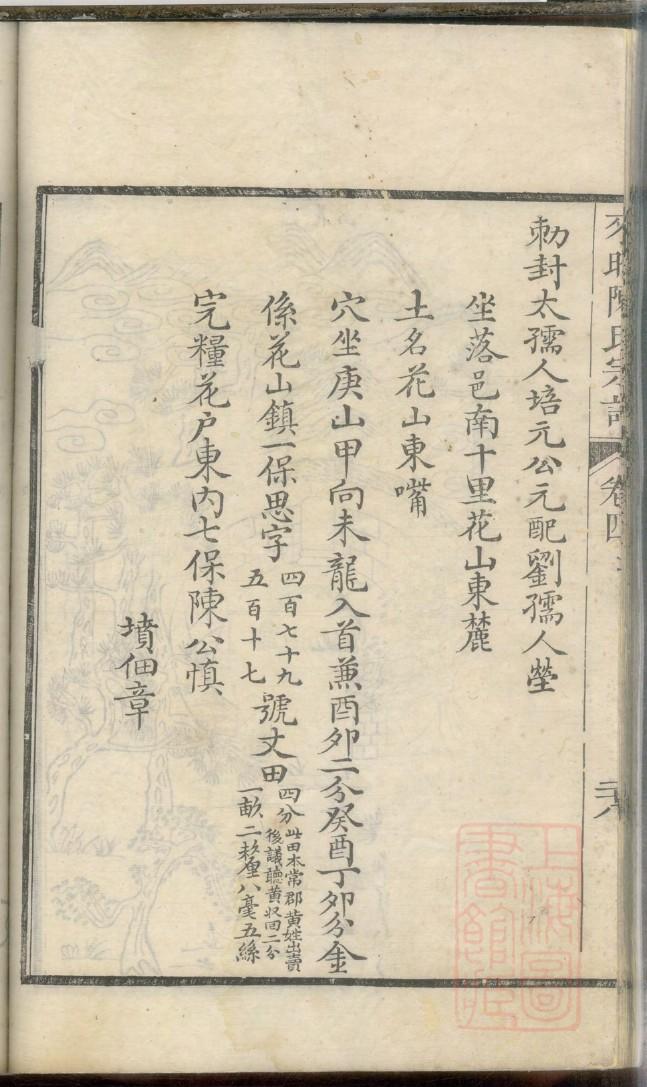 勅封太孺人培元公元配劉孺人塋
坐落邑南十里花山東麓
土名花山東嘴
穴坐庚山甲向未龍入首兼酉卯二分癸酉丁卯分金
係花山鎮一保思字
四百七十九
五百十七
號丈田
四分
此田本常郡黃姓出賣
後議聽黃収回二分
一畝二釐八毫五絲
完糧花户東内七保陳公慎
墳佃章
陳氏宗譜
卷四
上海圖書館藏